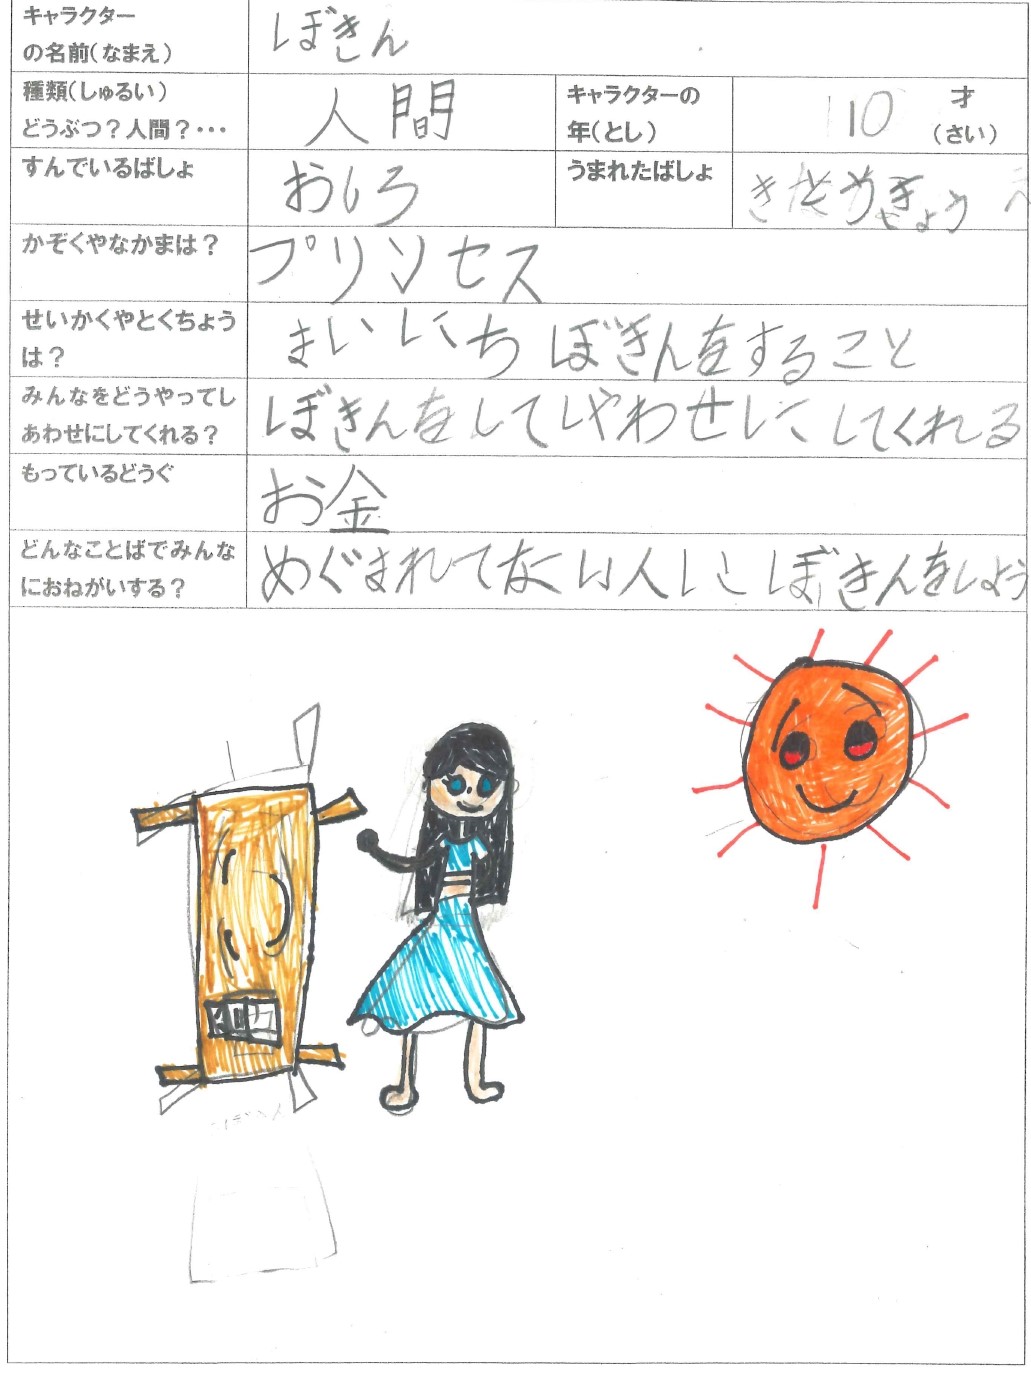 キャラクター
の名前(なまえ)
ぼきん
種類(しゅるい)
どうぶつ?人間?・・・
人間
キャラクターの
年(とし)
110 才
(さい)
すんでいるばしょ
おしろ
うまれたばしょ
かぞくやなかまは?
プリンセス
せいかくやとくちょう
は?
まいいにち ぼきんをすること
みんなをどうやってし
あわせにしてくれる?
ぼきんをしてしやわせにしてくれる
もっているどうぐ
お金
どんなことばでみんな
におねがいする?
めぐまれてない人にぼきんをしよう